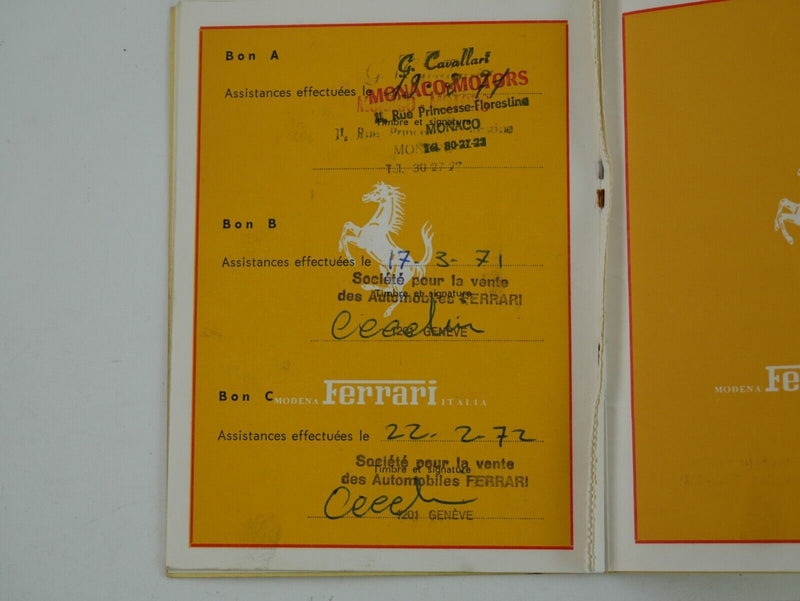 Bon A
G. Cavallari
Assistances effectuées le
MONACO-MOTORS
11, Rue Princesse-Florestine
Timbre et signature
MONACO
Tél. 30-27-22
Tél. 30-27-22
Bon B
Assistances effectuées le 17-3-71
Société pour la vente
Timbre et signature
des Automobiles FERRARI
1201 GENÈVE
Bon C
MODENA Ferrari ITALIA
Assistances effectuées le 22-2-72
Société pour la vente
Timbre et signature
des Automobiles FERRARI
1201 GENÈVE
MODENA Fe